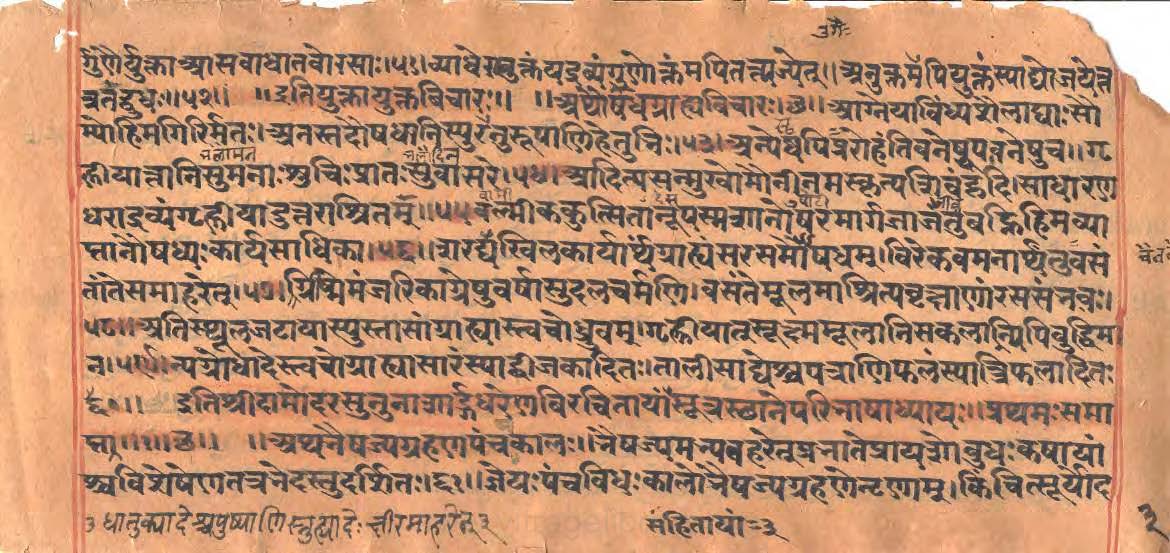 ३गैः
गुणैर्युक्ता आसवाधातवोरसाः॥५१॥व्याधेरयुक्तंयद्द्रव्यंगुणोक्तंमपितत्त्यजेत्॥अनुक्तमपियुक्तंस्याद्योजयेत्त
त्रतद्बुधः॥५२॥ ॥इतियुक्तायुक्तविचारः॥ ॥अथौषधग्राह्यविचारः॥छ॥आग्नेयाविंध्यशैलाद्याः सौ
म्योहिमगिरिर्मतः।अतस्तदौषधानिस्युरनुरूपाणिहेतुभिः॥५३॥अन्येष्वपिप्ररोहंतिवनेषूपवनेषुच॥गृ
ह्णीयात्तानिसुमनाः शुचिः प्रातः सुवासरे।५४॥आदित्यसन्मुखोमौनीनमस्कृत्यशिवंहृदि।साधारण
धराद्रव्यंगृह्णीयादुत्तराश्रितम्॥५५॥वल्मीककुत्सितानूपस्मशानोषरमार्गजाजंतुवह्निहिमव्या
प्तानौषध्यः कार्यसाधिका॥५६॥शरद्यखिलकार्यार्थंग्राह्यंसरसमौषधम्।विरेकवमनार्थंतुवसं
तांतेसमाहरेत्॥५७॥ग्रीष्मेमंजरिकाग्रेषुवर्षासुदलचर्मणि।वसंतेमूलमाश्रित्यवृक्षाणांरससंभवः।
५८॥अतिस्थूलजटायास्युस्तासांग्राह्यास्त्वचोध्रुवम्।गृह्णीयात्सूक्ष्ममूलानिसकलान्यपिबुद्धिमा
न।५९॥न्यग्रोधादेस्त्वचोग्राह्यासारंस्याद्बीजकादितः।तालीसाद्येश्चपत्राणिफलंस्यात्त्रिफलादितः
६०॥ इतिश्रीदामोदरसुतुनाशार्ङ्गधरेणविरचितायांसूत्रस्थानेपरिभाषाध्यायः॥प्रथमः समा
प्तः॥१॥छ॥ ॥अथभैषज्यग्रहणपंचकालः॥भैषज्यमभ्यवहरेत्प्रभातेप्रायशोबुधः कषायां
श्चविशेषेणतत्रभेदस्तुदर्शितः।६१॥ज्ञेयः पंचविधः कालोभैषज्यग्रहणेनृणाम्।किंचित्सूर्योद
३धातक्यादेश्चपुष्पाणिस्नुह्यादेः क्षीरमाहरेत्३
संहितायां=३
३